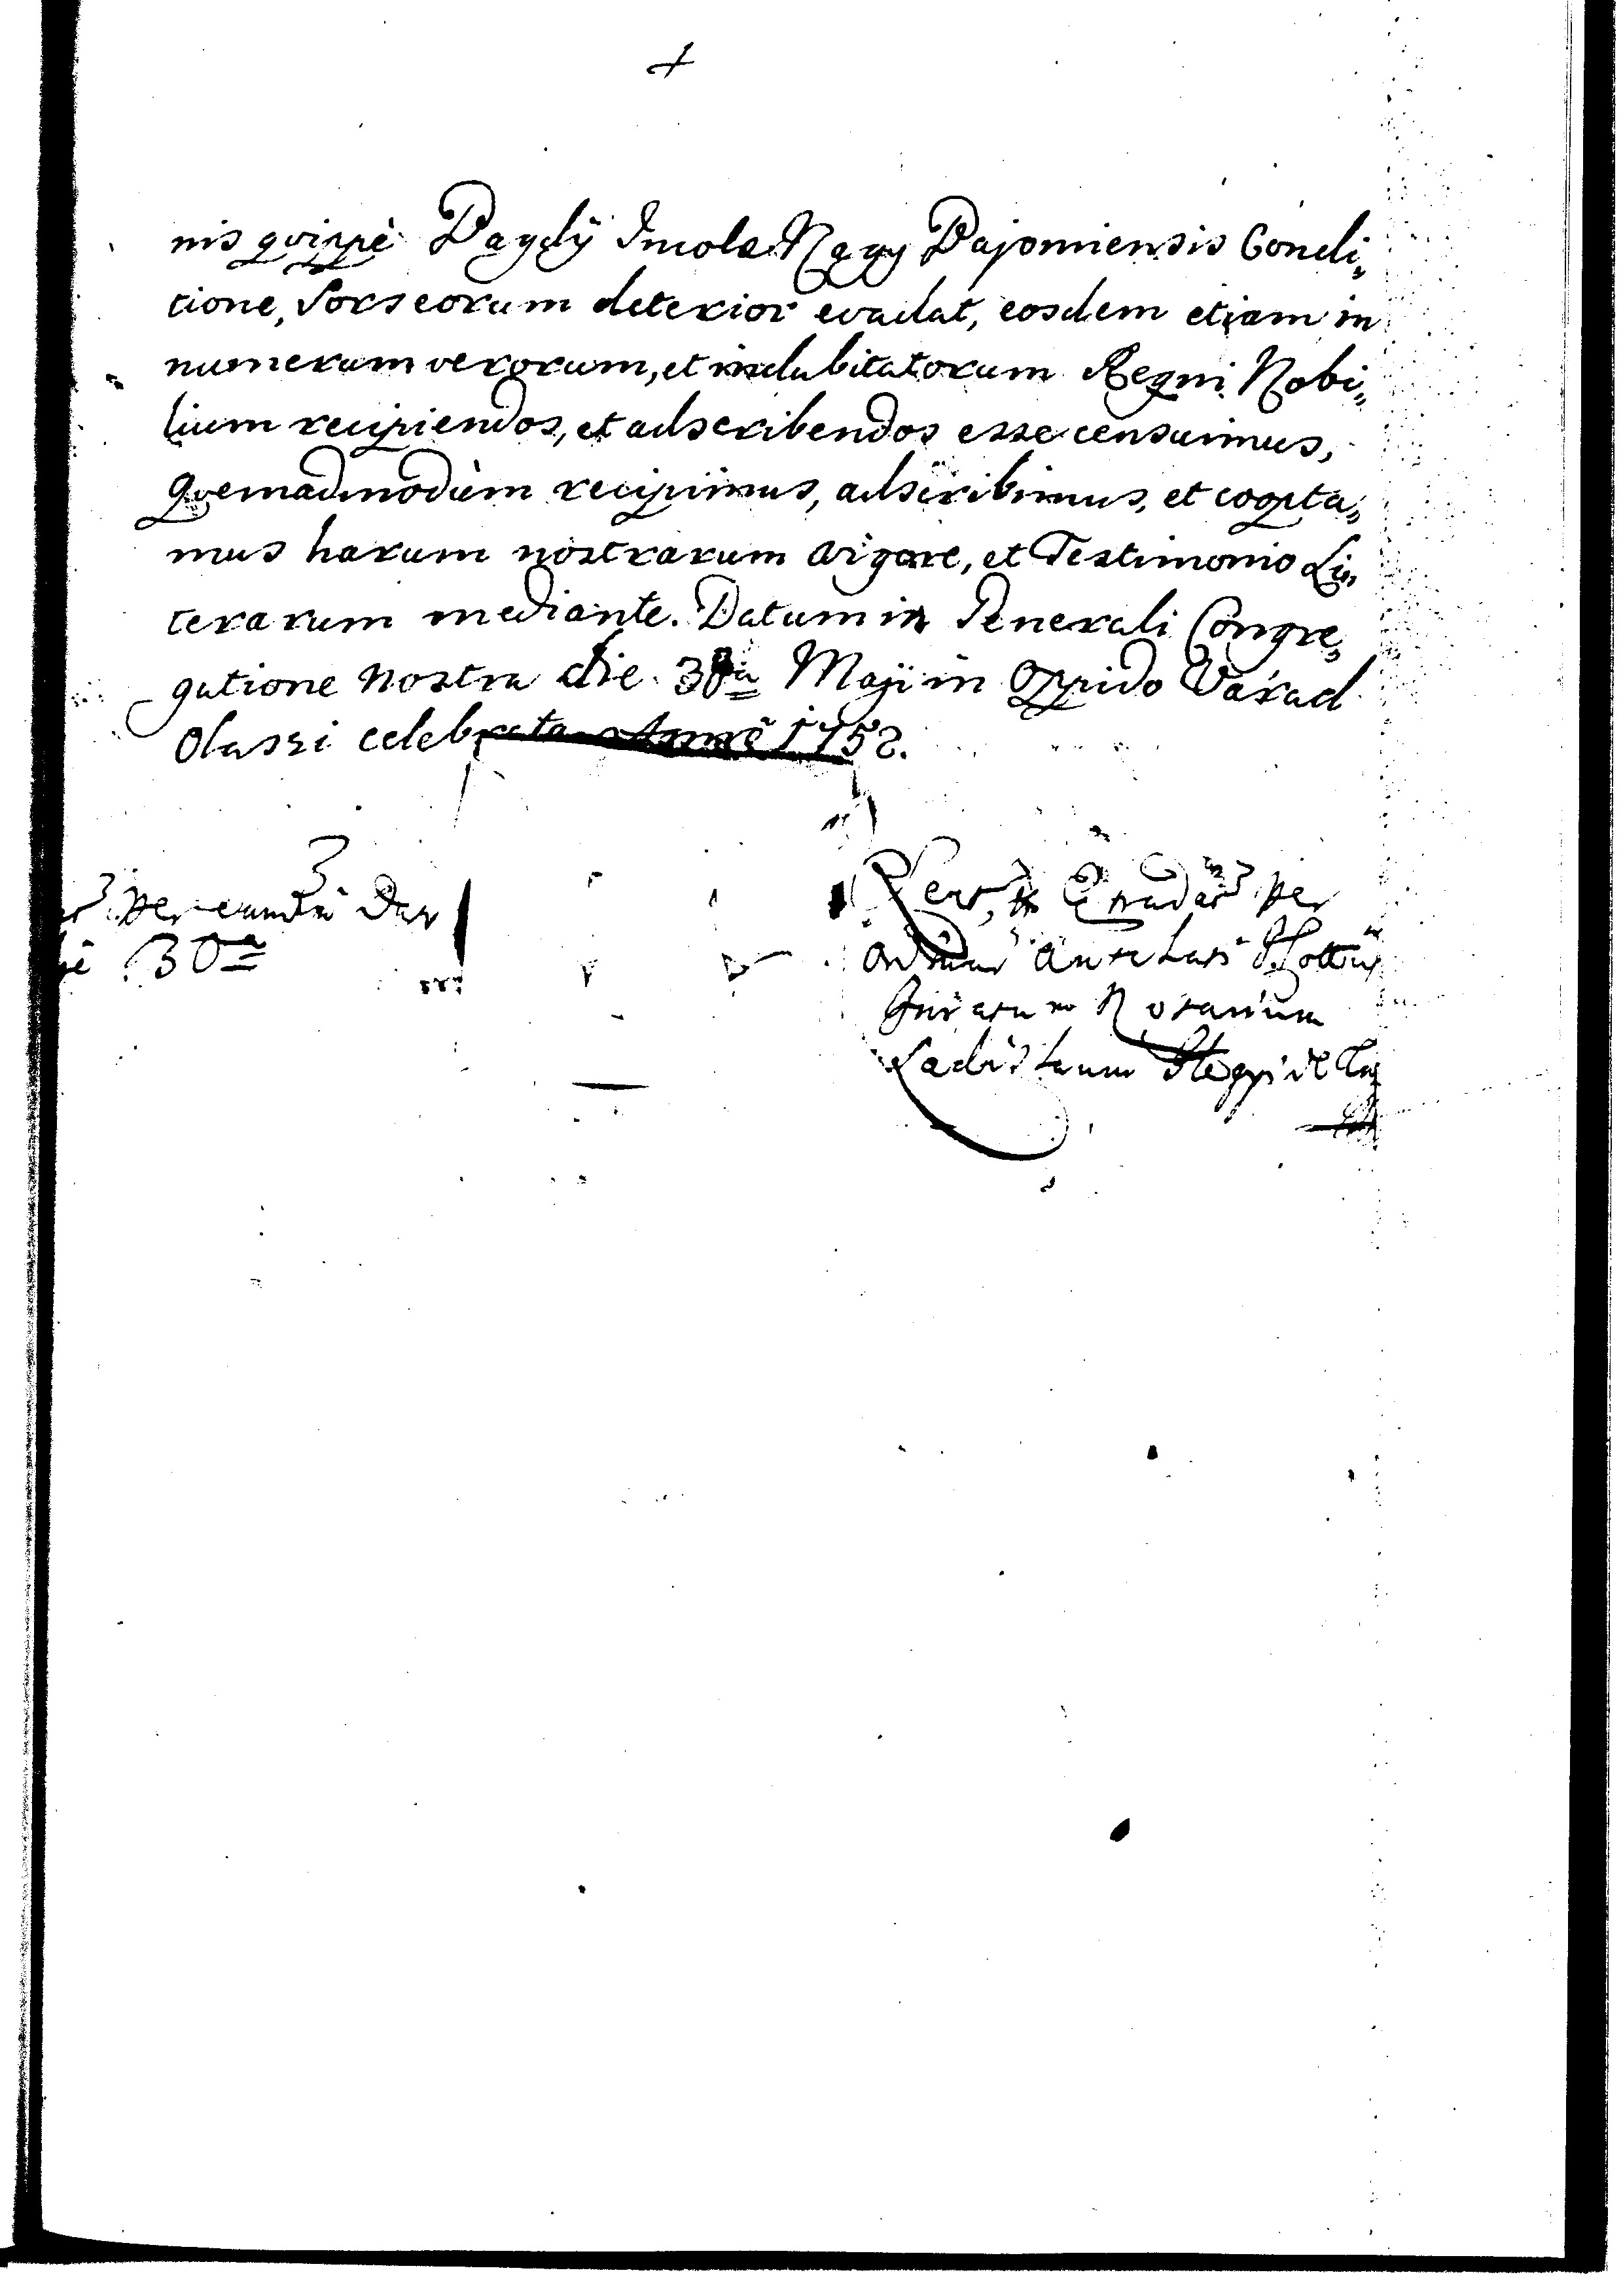 nis qvippè Pagdÿ Incolæ Nagy Bajomiensis Condi„
tione, Sors eorum deterior evadat, eosdem etiam in
numerum verorum, et indubitatorum Regni Nobi„
lium recipiendos, et adscribendos esse censuimus,
Qvemadmodùm recipimus, adscribimus, et coopta„
mus harum nostrarum vigore, et Testimonio Li„
terarum mediante. Datum in Generali Congre„
gatione nostra die 30ª Maji in Oppido Várad
Olaszi celebrata Anno 1758.
per eundem
30ª
per
Juratum Notarium
Ladislaum